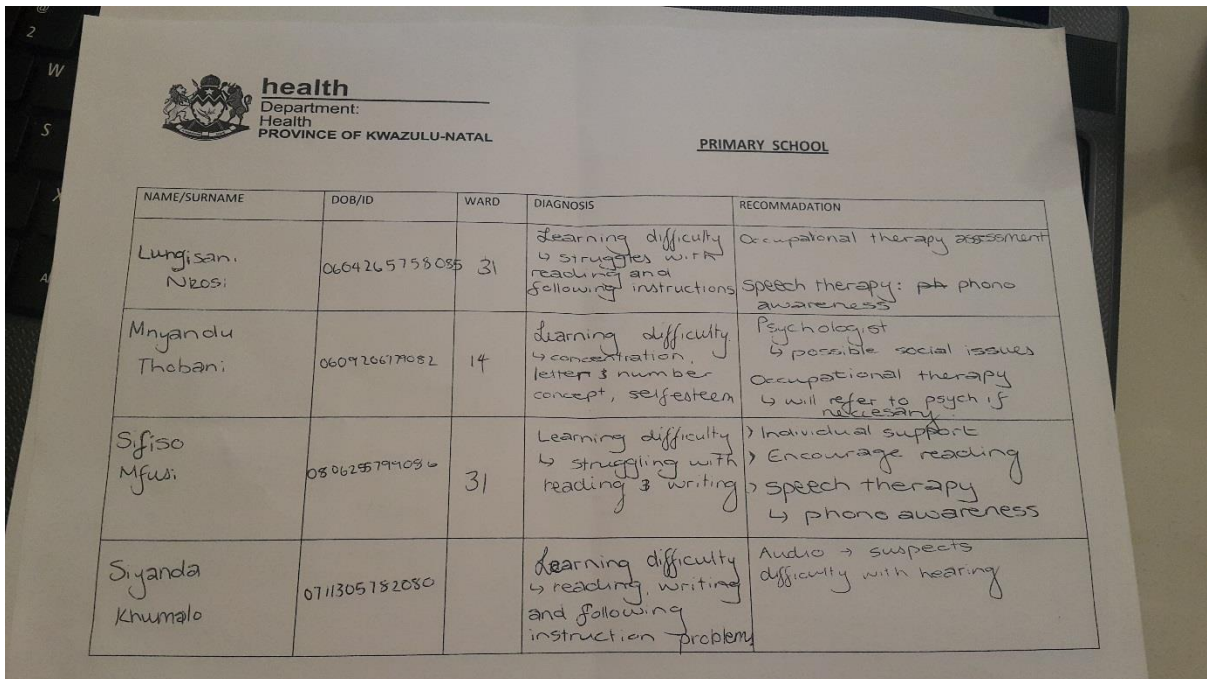 health
Department:
Health
PROVINCE OF KWAZULU-NATAL
PRIMARY SCHOOL
NAME/SURNAME DOB/ID WARD DIAGNOSIS RECOMMADATION
Lungisani
Nkosi
0604265758085
31
Learning difficulty
↳ struggles with
reading and
following instructions
Occupational therapy assessment
speech therapy: phono
awareness
Mnyandu
Thobani
14
Learning difficulty
↳ concentration,
letter & number
concept, selfesteem
Psychologist
↳ possible social issues
Occupational therapy
↳ will refer to psych if
neccesary.
Sifiso
Mfusi
31
Learning difficulty
↳ struggling with
reading & writing
> Individual support
> Encourage reading
> speech therapy
↳ phono awareness
Siyanda
Khumalo
0711305782080
Learning difficulty
↳ reading, writing
and following
instruction problems
Audio → suspects
difficulty with hearing
2
W
S